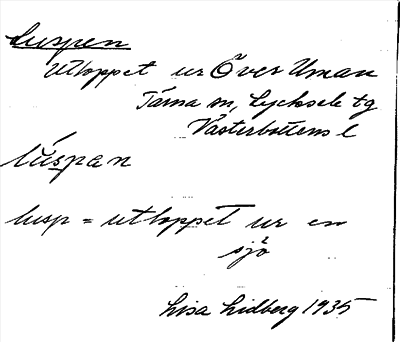 Luspen
Utloppet ur Över Uman
Tärna sn, Lycksele tg
Västerbottens l
lúspan
lusp = utloppet ur en
sjö
Lisa Lidberg 1935